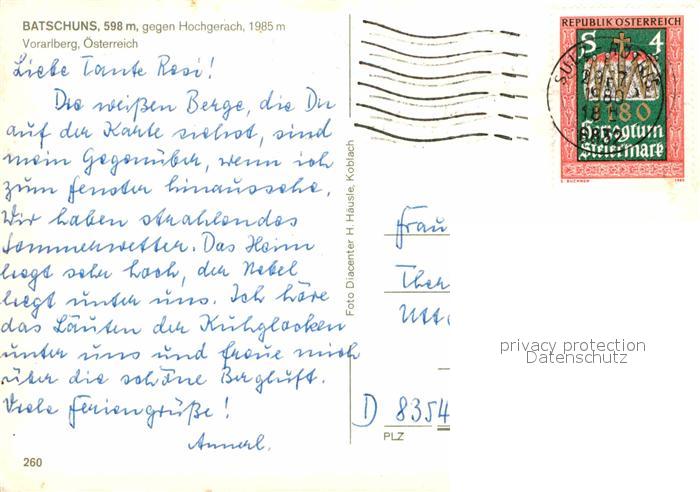 BATSCHUNS, 598 m, gegen Hochgerach, 1985 m
Vorarlberg, Österreich
Liebe Tante Resi!
Die weißen Berge, die Du
auf der Karte siehst, sind
mein Gegenüber, wenn ich
zum Fenster hinaussehe.
Wir haben strahlendes
Sommerwetter. Das Heim
liegt sehr hoch, der Nebel
liegt unter uns. Ich höre
das Läuten der Kuhglocken
unter uns und freue mich
über die schöne Bergluft.
Viele Feriengrüße!
Annerl.
260
Foto Diacenter H. Häusle, Koblach
REPUBLIK ÖSTERREICH
S 4
1180
Herzogtum
Steiermark
6832
Frau
Ther
Utt
D 8354
PLZ
privacy protection
Datenschutz